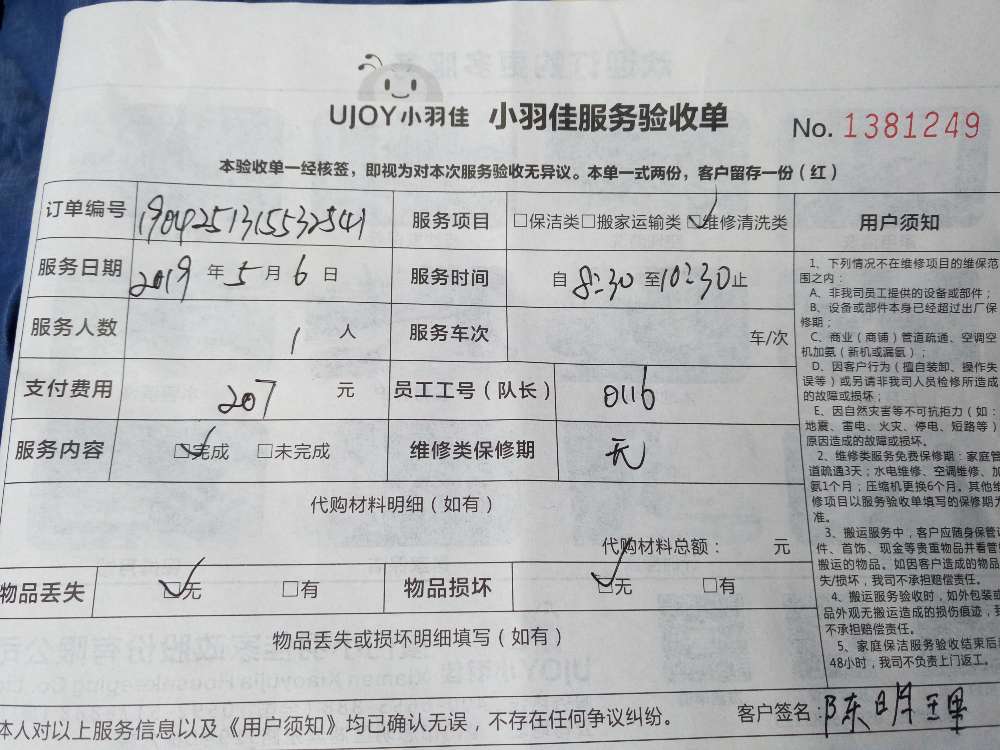 UJOY小羽佳 小羽佳服务验收单 No. 1381249
本验收单一经核签，即视为对本次服务验收无异议。本单一式两份，客户留存一份（红）
订单编号 1904251315532541 服务项目 □保洁类 □搬家运输类 ☑维修清洗类
服务日期 2019 年 5 月 6 日 服务时间 自 8:30 至 10:30 止
服务人数 1 人 服务车次 车/次
支付费用 207 元 员工工号（队长） 0116
服务内容 ☑完成 □未完成 维修类保修期 无
代购材料明细（如有）
代购材料总额： 元
物品丢失 ☑无 □有 物品损坏 ☑无 □有
物品丢失或损坏明细填写（如有）
本人对以上服务信息以及《用户须知》均已确认无误，不存在任何争议纠纷。 客户签名：陈明
用户须知
1、下列情况不在维修项目的维保范
围之内：
A、非我司员工提供的设备或部件；
B、设备或部件本身已经超过出厂保
修期；
C、商业（商铺）管道疏通、空调空
机加氨（新机或漏氨）；
D、因客户行为（擅自装卸、操作失
误等）或另请非我司人员检修所造成
的故障或损坏；
E、因自然灾害等不可抗拒力（如：
地震、雷电、火灾、停电、短路等）
原因造成的故障或损坏。
2、维修类服务免费保修期：家庭管
道疏通3天；水电维修、空调维修、加
氨1个月；压缩机更换6个月。其他维
修项目以服务验收单填写的保修期为
准。
3、搬运服务中，客户应随身保管证
件、首饰、现金等贵重物品并看管
搬运的物品。如因客户造成的物品
失/损坏，我司不承担赔偿责任。
4、搬运服务验收时，如外包装或
品外观无搬运造成的损伤痕迹，我
不承担赔偿责任。
5、家庭保洁服务验收结束后
48小时，我司不负责上门返工。